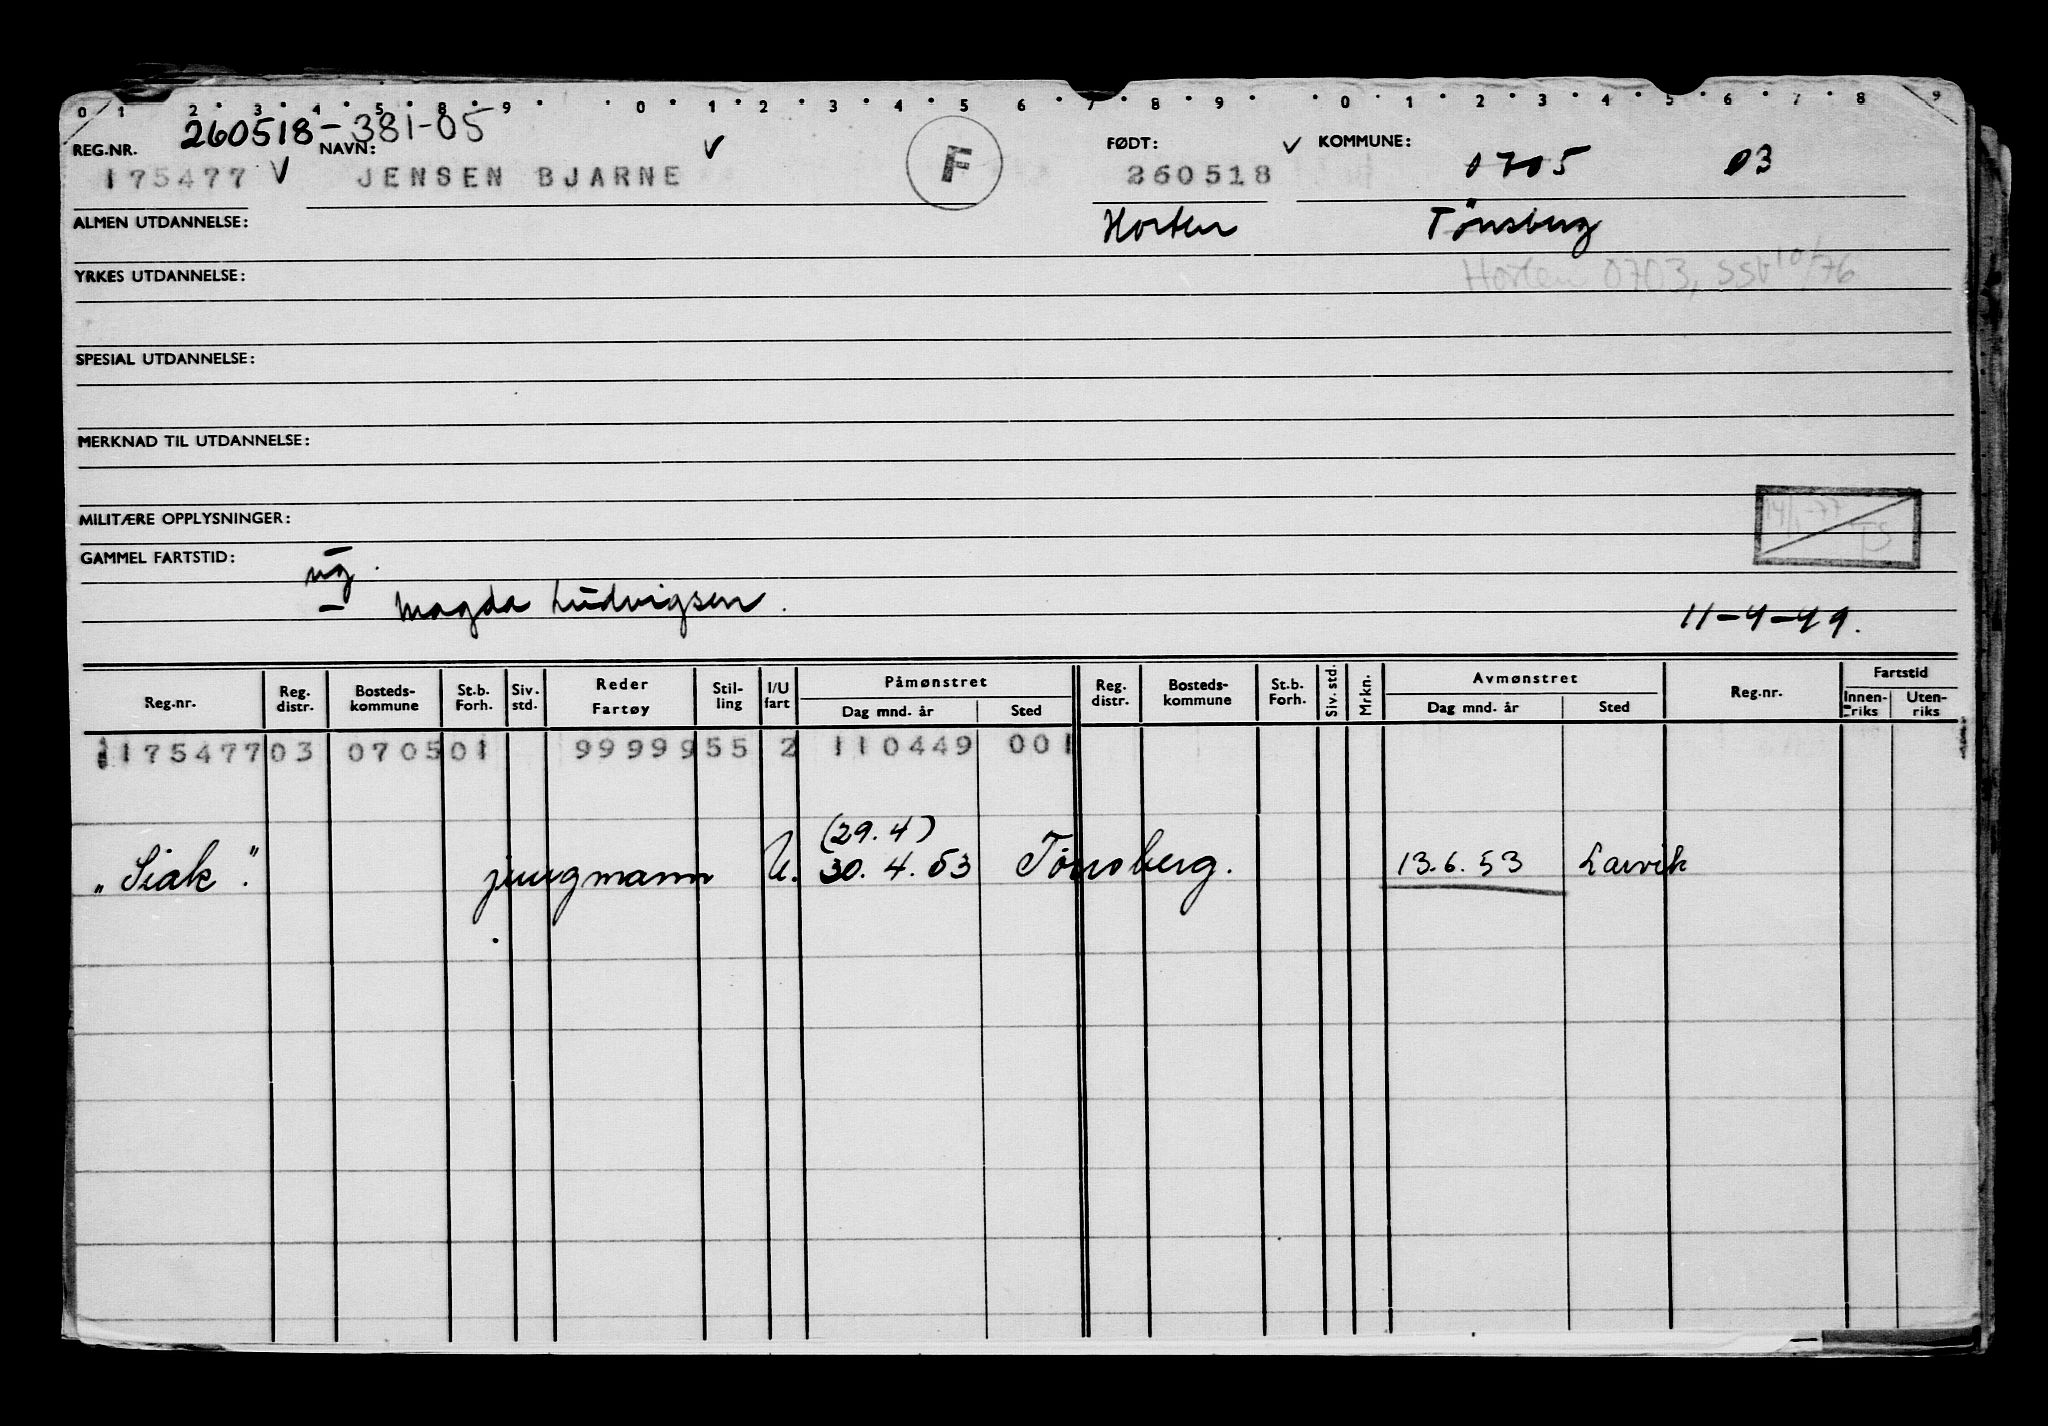 0 1 2 3 4 5 8 9 0 1 2 3 4 5 6 7 8 9 0 1 2 3 4 5 6 7 8 9
260518-381-05
REG.NR. NAVN: FØDT: KOMMUNE: 0705 03
175477 JENSEN BJARNE F 260518
ALMEN UTDANNELSE: Horten Tönsberg
YRKES UTDANNELSE: Horten 0703, SSV 10/76
SPESIAL UTDANNELSE:
MERKNAD TIL UTDANNELSE:
MILITÆRE OPPLYSNINGER: 14/1-77 TS
GAMMEL FARTSTID:
ug.
Magda Ludvigsen. 11-4-49.
Reg.nr. Reg. distr. Bosteds-kommune St.b. Forh. Siv. std. Reder Fartøy Stil-ling I/U fart Påmønstret Dag mnd. år Sted Reg. distr. Bosteds-kommune St.b. Forh. Siv. std. Mrkn. Avmønstret Dag mnd. år Sted Reg.nr. Fartstid Innen-riks Uten-riks
175477 03 0705 01 99999 55 2 110449 001
(29.4)
"Siak". jungmann U. 30.4.53 Tønsberg. 13.6.53 Larvik